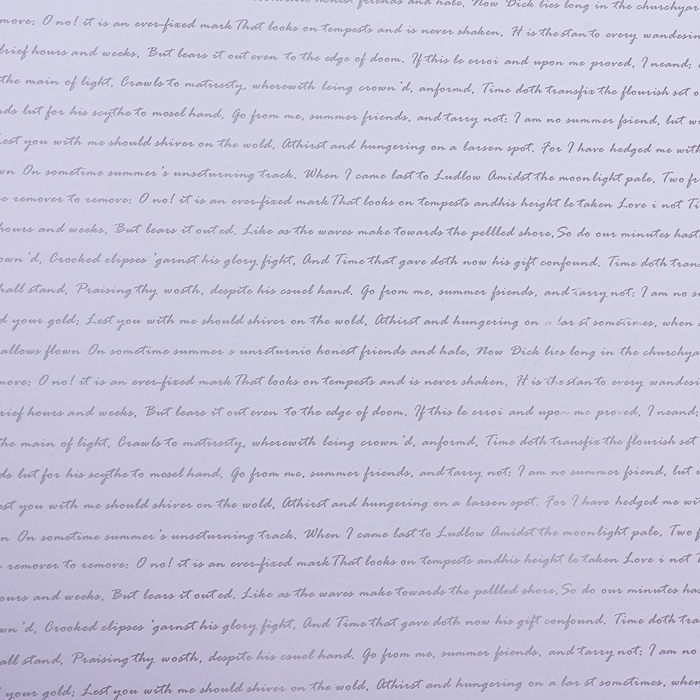 honest friends and hale, Now Dick lies long in the churchyar
move: O no! it is an ever-fixed mark That looks on tempests and is never shaken, H is the stan to every wandesin
brief hours and weeks, But lears it out even to the edge of doom. If this le erroi and upon me proved, I neand;
the main of light, Crawls to matirsty, wherewith leing crown'd, anformd, Time doth transfix the flourish set o
ds lut for his scythe to mosel hand, Go from me, summer friends, and tarry not: I am no summer fsiend, lut w
Lest you with me should shiver on the wold, Athirst and hungering on a larsen spot. For I have hedged me with
wn On sometime summer's unseturning track. When I came last to Ludlow Amidst the moonlight pale, Two fr
e remover to remove: O no! it is an ever-fixed mark That looks on tempests andhis height le taken Love i not Ti
hours and weeks, But lears it out ed. Like as the waves make towards the pellled shore, So do our minutes hast
own'd, Crooked elipses 'garnst his glory fight, And Time that gave doth now his gift confound. Time doth tran
hall stand, Praising thy wosth, despite his csuel hand. Go from me, summer fsiends, and tarry not: I am no su
d your gold; Lest you with me should shiver on the wold, Athirst and hungering on a lar st sometimes, when
allows flown On sometime summer s unreturnio honest friends and hale, Now Dick lies long in the churchya
move: O no! it is an ever-fixed mark That looks on tempests and is never shaken, H is the stan to every wandesi
rief hours and weeks, But lears it out even to the edge of doom. If this le erroi and upon me proved, I neand;
he main of light, Crawls to matirsty, wherewith leing crown'd, anformd, Time doth transfix the flourish set
ds lut for his scythe to mosel hand, Go from me, summer friends, and tarry not: I am no summer fsiend, lut
est you with me should shiver on the wold, Athirst and hungering on a larsen spot. For I have hedged me wi
n On sometime summer's unseturning track. When I came last to Ludlow Amidst the moonlight pale, Two f
remover to remove: O no! it is an ever-fixed mark That looks on tempests andhis height le taken Love i not T
ours and weeks, But lears it out ed. Like as the waves make towards the pellled shore, So do our minutes has
wn'd, Crooked elipses 'garnst his glory fight, And Time that gave doth now his gift confound. Time doth tra
all stand, Praising thy wosth, despite his csuel hand. Go from me, summer fsiends, and tarry not: I am no
your gold; Lest you with me should shiver on the wold, Athirst and hungering on a lar st sometimes, whe